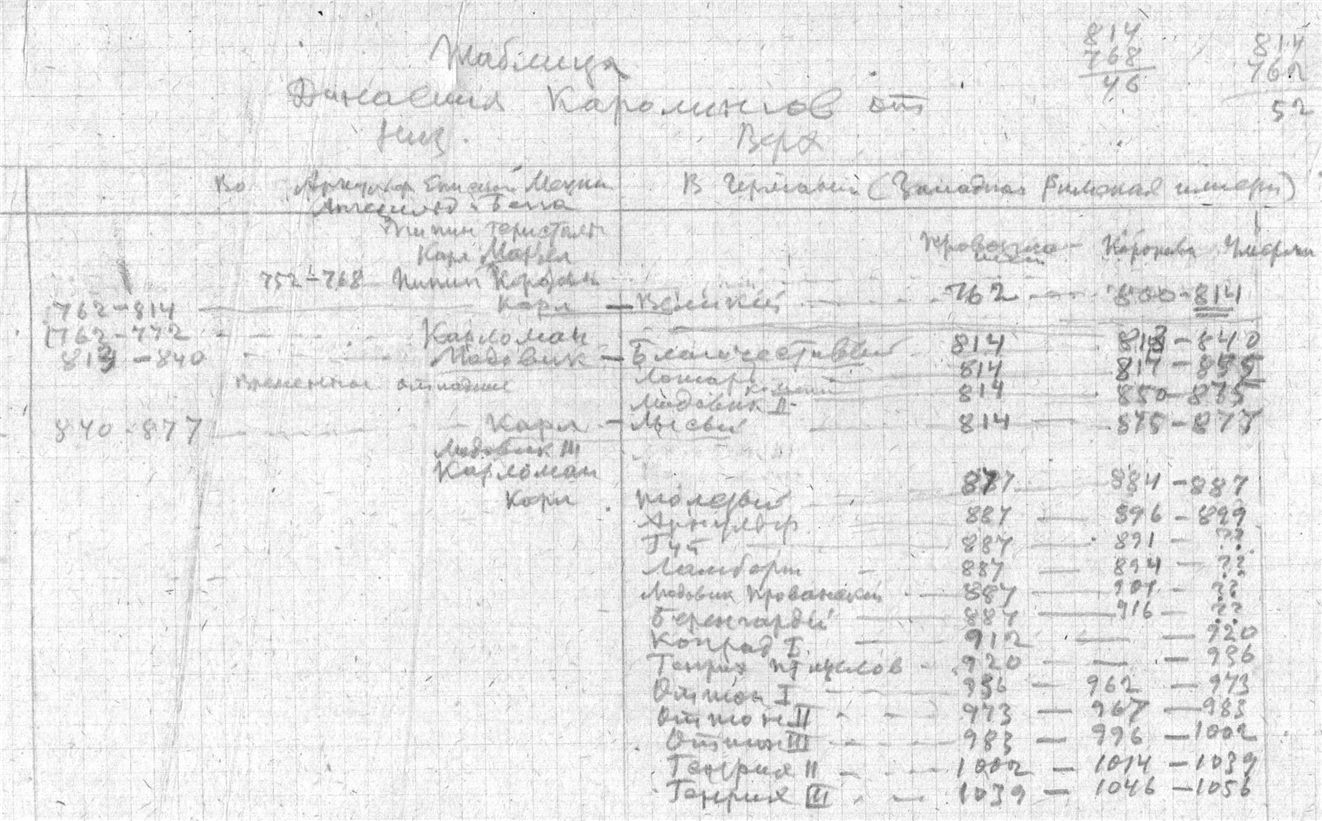 814
768
46
814
762
52
Таблица
Династия Каролингов от
Низ. Верх
Во Арнульф Епископ Меца В Германии (Западная Римская импери)
Анчезильд + Бегга
Пипин Геристаль
Карл Мартел Провозгла- Коронова Умерли
752-768 Пипин Коротк
762-814 Карл — Великий 762 800-814
762-772 Карломан
814-840 Людовик — Благочестивый 814 813-840
Временное Лотарь 814 817-855
Людовик II 814 850-875
840-877 Карл — Лысый 814 875-877
Людовик III
Карломан
Карл Толстый 887 884-887
Арнульф 887 — 896-899
Гуи 887 — 891 - ??
Ламберт - 887 — 894 - ??
Людовик Прованский - 887 — 901 - ??
Беренгардый — 887 — 916 - ??
Конрад I — 912 — — 920
Генрих Птицелов - 920 — — 936
Оттон I 936 — 962 — 973
Оттон II - - 973 — 967 — 983
Оттон III - - - 983 — 996 — 1002
Генрих II - - - 1002 — 1014 — 1039
Генрих III - - 1039 — 1046 — 1056